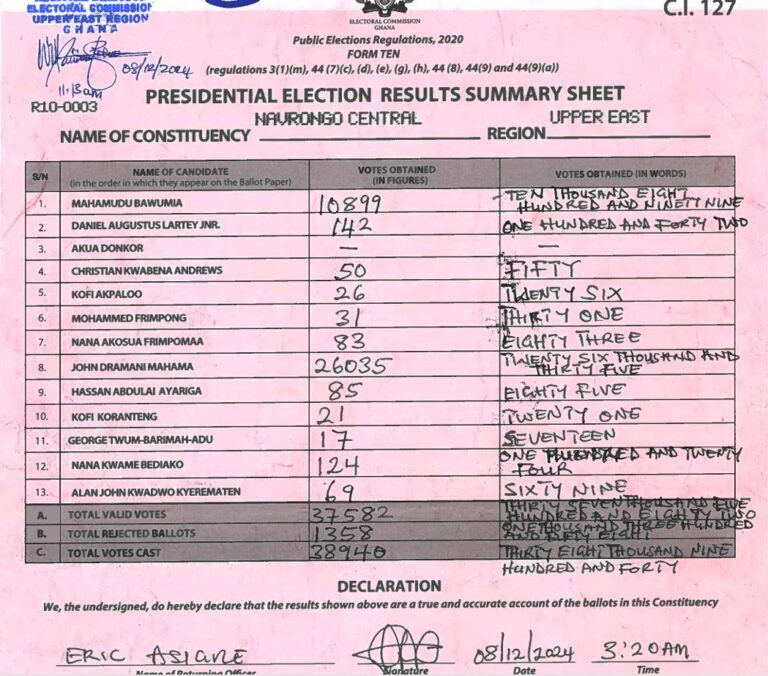 ELECTORAL COMMISSION
UPPER EAST REGION
GHANA
08/12/2024
11:13am
R10-0003
ELECTORAL COMMISSION
GHANA
C.I. 127
Public Elections Regulations, 2020
FORM TEN
(regulations 3(1)(m), 44 (7)(c), (d), (e), (g), (h), 44 (8), 44(9) and 44(9)(a))
PRESIDENTIAL ELECTION RESULTS SUMMARY SHEET
NAME OF CONSTITUENCY NAVRONGO CENTRAL REGION UPPER EAST
S/N NAME OF CANDIDATE (in the order in which they appear on the Ballot Paper) VOTES OBTAINED (IN FIGURES) VOTES OBTAINED (IN WORDS)
1. MAHAMUDU BAWUMIA 10899 TEN THOUSAND EIGHT HUNDRED AND NINETY NINE
2. DANIEL AUGUSTUS LARTEY JNR. 142 ONE HUNDRED AND FORTY TWO
3. AKUA DONKOR — —
4. CHRISTIAN KWABENA ANDREWS 50 FIFTY
5. KOFI AKPALOO 26 TWENTY SIX
6. MOHAMMED FRIMPONG 31 THIRTY ONE
7. NANA AKOSUA FRIMPOMAA 83 EIGHTY THREE
8. JOHN DRAMANI MAHAMA 26035 TWENTY SIX THOUSAND AND THIRTY FIVE
9. HASSAN ABDULAI AYARIGA 85 EIGHTY FIVE
10. KOFI KORANTENG 21 TWENTY ONE
11. GEORGE TWUM-BARIMAH-ADU 17 SEVENTEEN
12. NANA KWAME BEDIAKO 124 ONE HUNDRED AND TWENTY FOUR
13. ALAN JOHN KWADWO KYEREMATEN 69 SIXTY NINE
A. TOTAL VALID VOTES 37582 THIRTY SEVEN THOUSAND FIVE HUNDRED AND EIGHTY TWO
B. TOTAL REJECTED BALLOTS 1358 ONE THOUSAND THREE HUNDRED AND FIFTY EIGHT
C. TOTAL VOTES CAST 38940 THIRTY EIGHT THOUSAND NINE HUNDRED AND FORTY
DECLARATION
We, the undersigned, do hereby declare that the results shown above are a true and accurate account of the ballots in this Constituency
ERIC 08/12/2024 3:20AM
Name of Returning Officer Signature Date Time